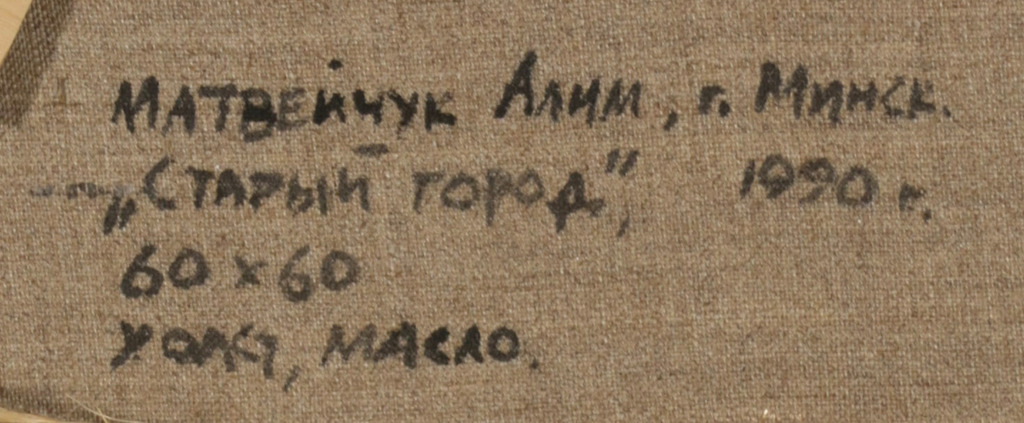 Матвейчук Алим, г. Минск.
„Старый город", 1990 г.
60 х 60
Холст, масло.